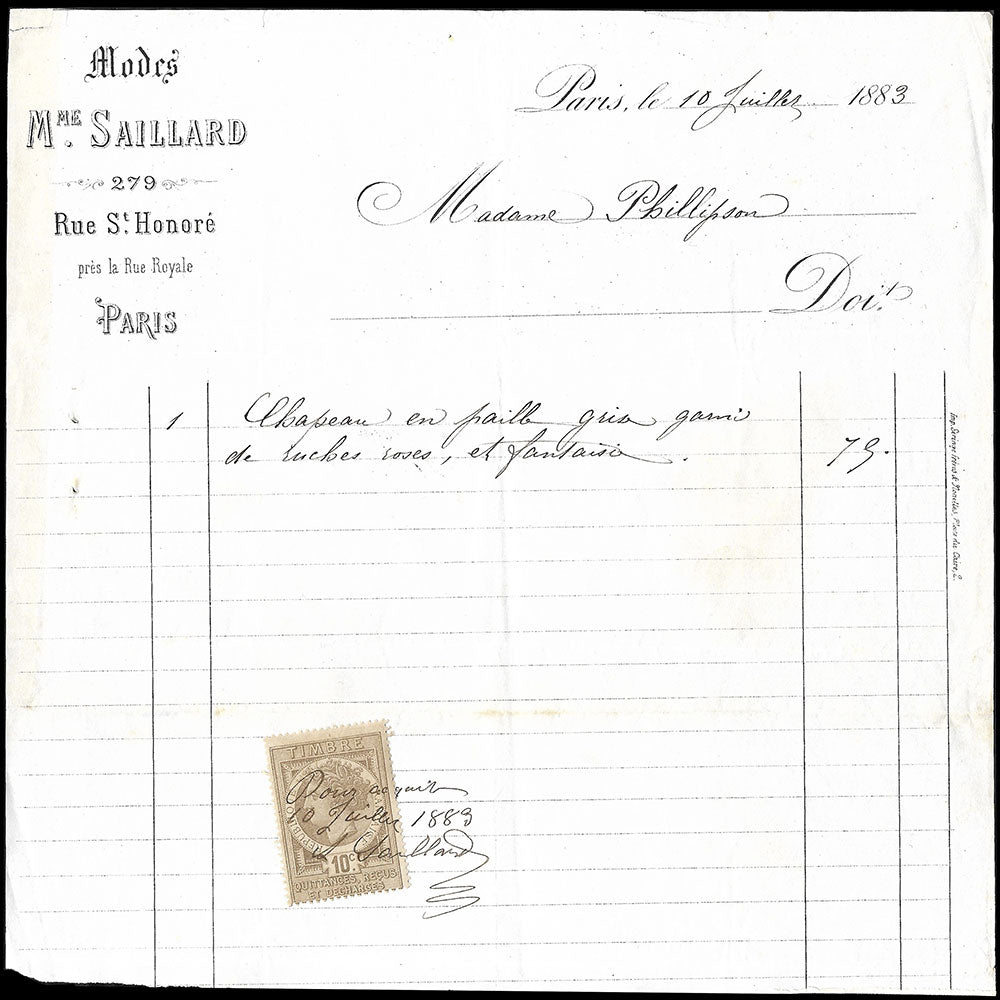 Modes
MME. SAILLARD
279
Rue St. Honoré
près la Rue Royale
PARIS
Paris, le 10 Juillet 1883
Madame Phillipson
Doit
1 Chapeau en paille grise garni
de ruches roses, et fantaisie. 75.
TIMBRE
Pour acquit
10 Juillet 1883
Saillard
10c
QUITTANCES, REÇUS
ET DÉCHARGES
Place du Caire, 2.